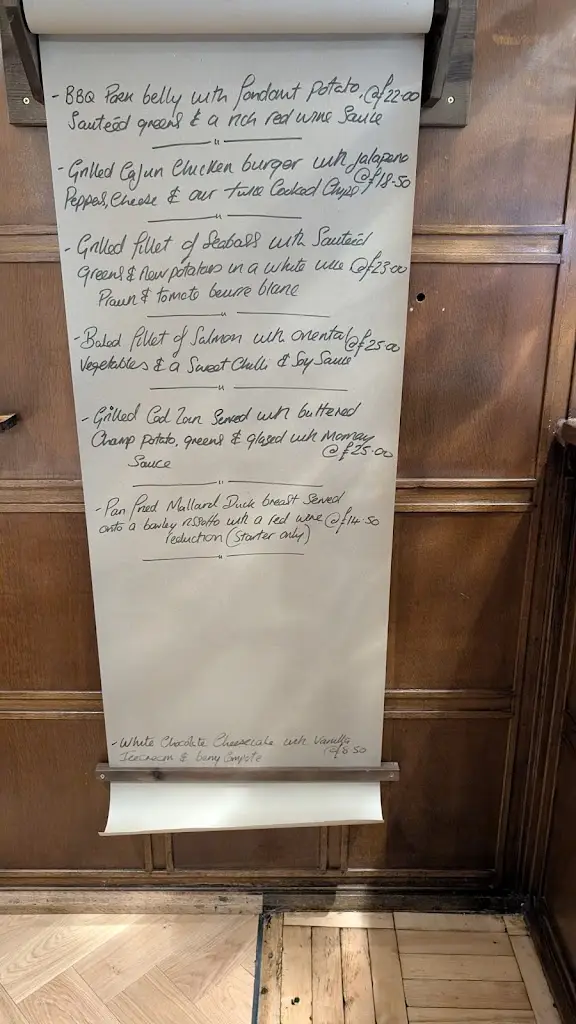 - BBQ Pork belly with fondant potato, @£22.00
Sauteéd greens & a rich red wine Sauce
- Grilled Cajun Chicken burger with Jalapeno
Pepper, Cheese & our twice Cooked Chips @£18.50
- Grilled fillet of Seabass with Sauteéd
greens & new potatoes in a white wine @£23.00
Prawn & tomato beurre blanc
- Baked fillet of Salmon with oriental @£25.00
Vegetables & a Sweet Chilli & Soy Sauce
- Grilled Cod Loin Served with buttered
Champ Potato, greens & glazed with Mornay
Sauce @£25.00
- Pan Fried Mallard Duck breast Served
onto a barley rissotto with a red wine @£14.50
reduction (Starter only)
- White Chocolate Cheesecake with Vanilla
Icecream & berry Compote @£8.50